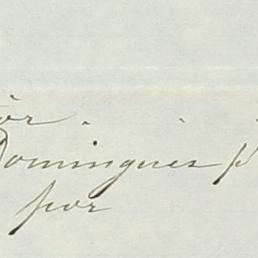 Domingues
por